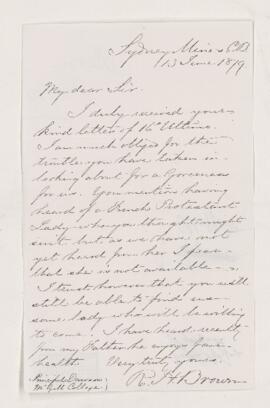 Sydney Mines C.B
13 June 1879
My dear Sir.
I duly received your
kind letter of 4th Ultimo.
I am much obliged for the
trouble you have taken in
looking about for a Governess
for us. You mention having
heard of a French Protestant
Lady who you thought might
suit but as we have not
yet heard from her I fear
that she is not available.
I trust however that you will
still be able to find us
some lady who will be willing
to come. I have heard recently
from my Father he enjoys
health. Very truly yours.
R. H. Brown
Principal Dawson
McGill College